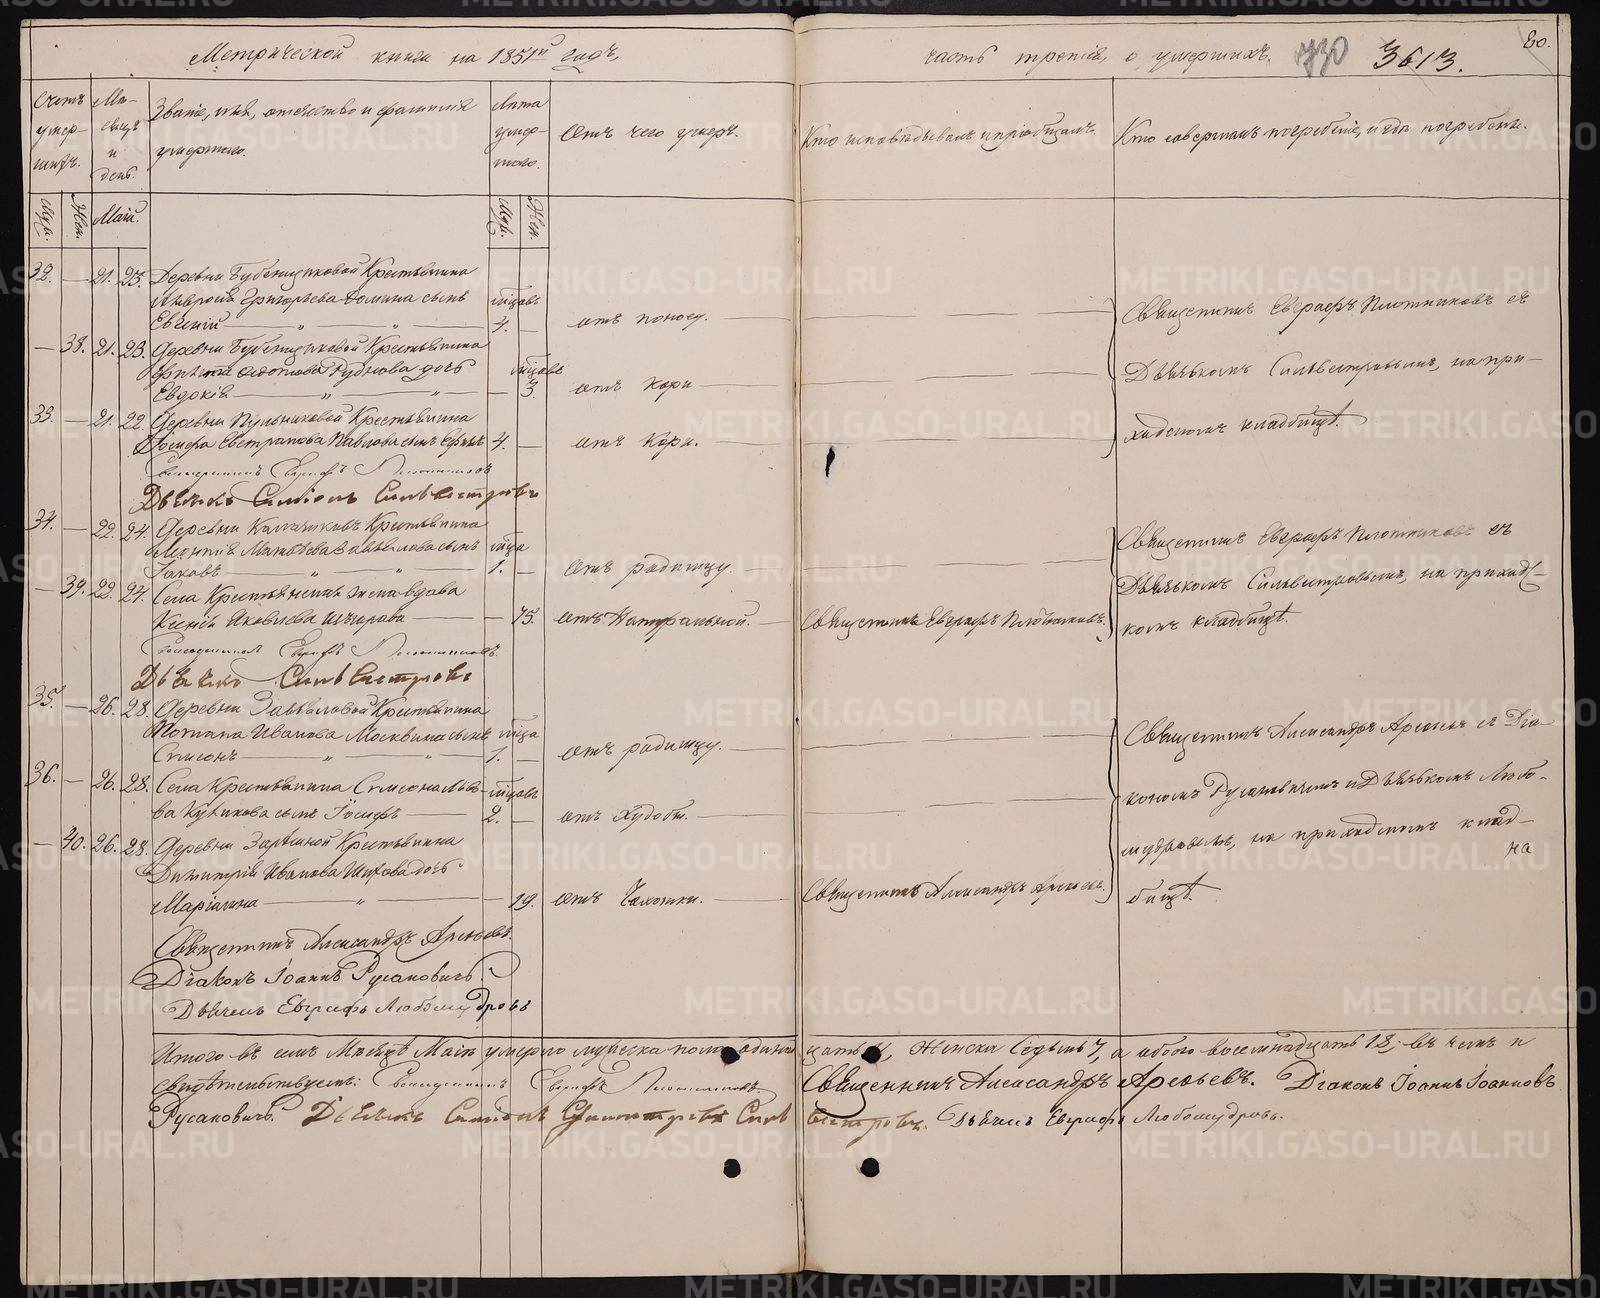 Метрической книги на 1851й годъ, часть третія, о умершихъ. 730 3613. 80.
Счетъ умер-шихъ.
Мѣ-сяцъ и день.
Званіе, имя, отечество и фамилія умершаго.
Лѣта умер-шаго.
Отъ чего умеръ.
Кто исповѣдывалъ и пріобщалъ.
Кто совершалъ погребеніе, и гдѣ погребены.
Муж. Жен. Маій. Муж. Жен.
32. — 21. 23. Деревни Бубенщиковой Крестьянина
Амвросія Григорьева сынъ мѣсяцъ
Евгеній — " — " — 4. — отъ поносу.
Священникъ Евграфъ Плотниковъ съ
— 38. 21. 23. Деревни Бубенщиковой Крестьянина
дочь
Евдокія — " — " — 3. отъ кори
Дьячкомъ Сильвестровымъ, на при-
33. — 21. 22. Деревни Крестьянина
Іосифа Евстратова Павлова сынъ 4. — отъ Кори.
ходскомъ кладбищѣ.
Священникъ Евграфъ Плотниковъ
Дьячекъ Симеонъ Сильвестровъ
34. — 22. 24. Деревни Крестьянина
Матвѣева сынъ мѣсяца
Іаковъ — " — " — 1. — отъ родимцу.
Священникъ Евграфъ Плотниковъ съ
Дьячькомъ Сильвестровымъ, на приход-
— 39. 22. 24. Села Крестьянская жена вдова
Ксенія Яковлева — 75. отъ Натуральной. — Священникъ Евграфъ Плотниковъ.
комъ кладбищѣ.
Священникъ Евграфъ Плотниковъ.
Дьячекъ Сильвестровъ
35. — 26. 28. Деревни Завьяловой Крестьянина
Потапа Иванова Москвина сынъ мѣсяца
Симеонъ — " — " — 1. — отъ родимцу.
Священникъ Александръ Арефьевъ съ Діа-
36. — 26. 28. Села Крестьянина Симеона Льво-
ва Куликова сынъ Іосифъ — 2. — отъ Худобы.
кономъ Русановичемъ и Дьячькомъ Любо-
— 40. 26. 28. Деревни Крестьянина
Димитрія Иванова дочь
Маріамна — " — 19. отъ Чахотки. — Священникъ Александръ Арефьевъ.
мудровымъ, на приходскомъ клад-
бищѣ.
Священникъ Александръ Арефьевъ.
Діаконъ Іоаннъ Русановичъ.
Дьячекъ Евграфъ Любомудровъ
Итого въ семъ Мѣсяцѣ Маіѣ умерло мужеска пола одиннадцать 11, Женска Седьмь 7, а обоего восемнадцать 18; въ чемъ и
свидѣтельствуемъ: Священникъ Евграфъ Плотниковъ Священникъ Александръ Арефьевъ. Діаконъ Іоаннъ Іоанновъ
Русановичъ. Дьячекъ Симеонъ Сильвестровъ. Дьячекъ Евграфъ Любомудровъ.
METRIKI.GASO-URAL.RU